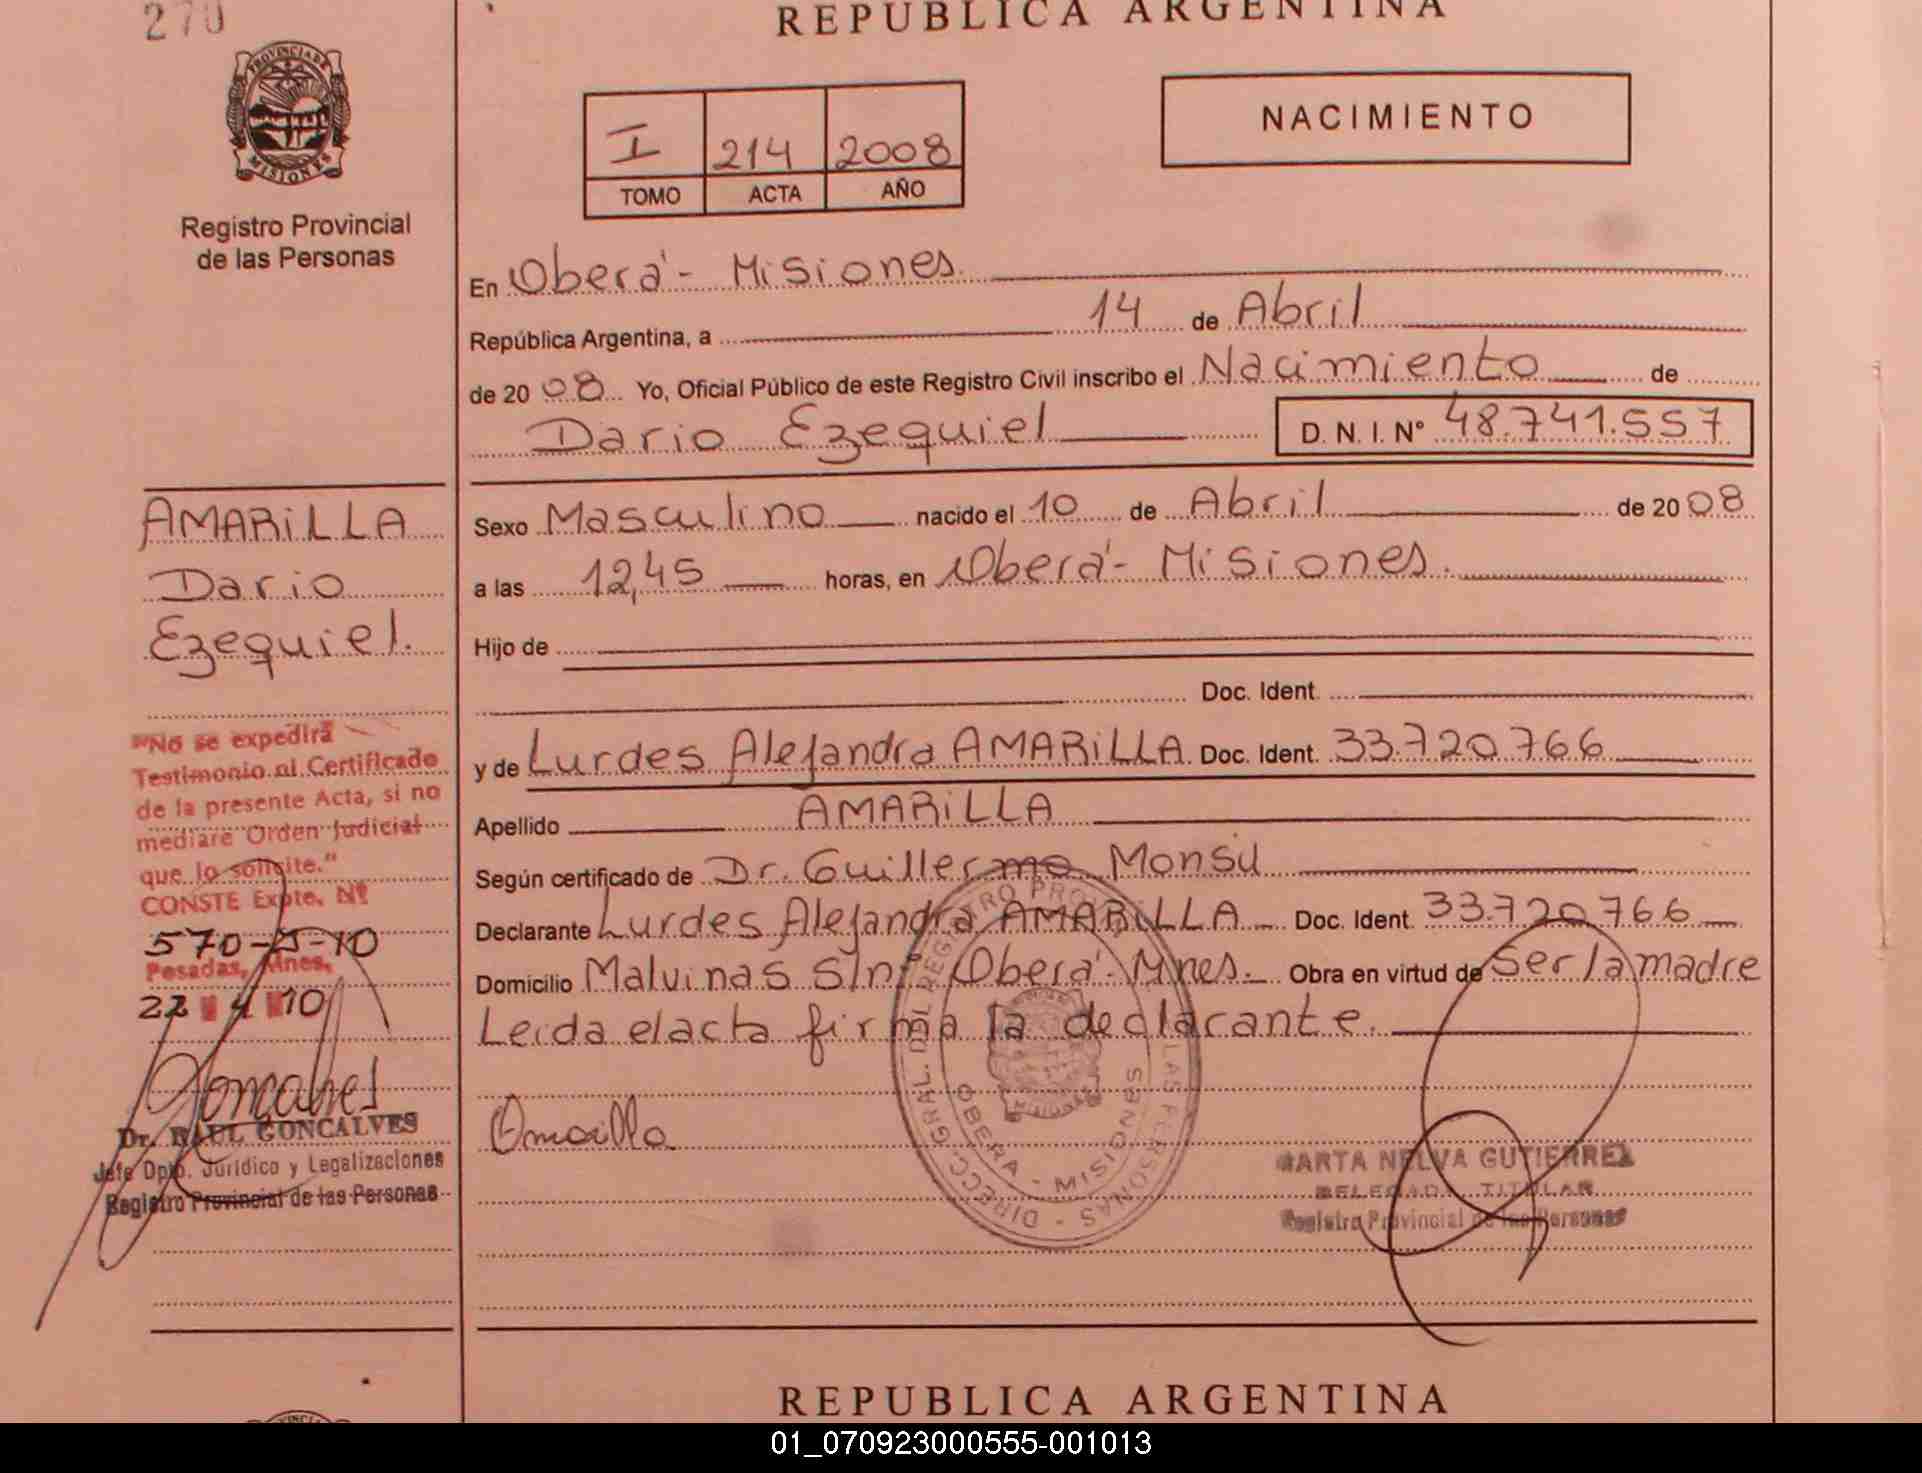 270
REPUBLICA ARGENTINA
PROVINCIA DE
MISIONES
Registro Provincial
de las Personas
I 214 2008
TOMO ACTA AÑO
NACIMIENTO
En Oberá - Misiones.
República Argentina, a 14 de Abril
de 2008 Yo, Oficial Público de este Registro Civil inscribo el Nacimiento de
Dario Ezequiel D. N. I. Nº 48.741.557
Sexo Masculino nacido el 10 de Abril de 2008
a las 12,45 horas, en Oberá - Misiones.
Hijo de
Doc. Ident.
y de Lurdes Alejandra AMARiLLA Doc. Ident. 33.720.766
Apellido AMARiLLA
Según certificado de Dr. Guillermo Monsu
Declarante Lurdes Alejandra AMARiLLA Doc. Ident. 33.720.766
Domicilio Malvinas S/nº Oberá - Mnes. Obra en virtud de Ser la madre
Leida el acta firma la declarante.
AMARiLLA
Dario
Ezequiel.
"No se expedirá
Testimonio ni Certificado
de la presente Acta, si no
mediare Orden Judicial
que lo solicite."
CONSTE Expte. Nº
570-J-10
Posadas, Mnes,
22 4 10
Goncalves
Dr. RAUL GONCALVES
Jefe Dpto. Jurídico y Legalizaciones
Registro Provincial de las Personas
Amarilla
DIRECC. GRAL. DEL REGISTRO PROV. LAS PERSONAS
OBERA - MISIONES
MARTA NELVA GUTIERREZ
DELEGADA TITULAR
Registro Provincial de las Personas
REPUBLICA ARGENTINA
01_070923000555-001013